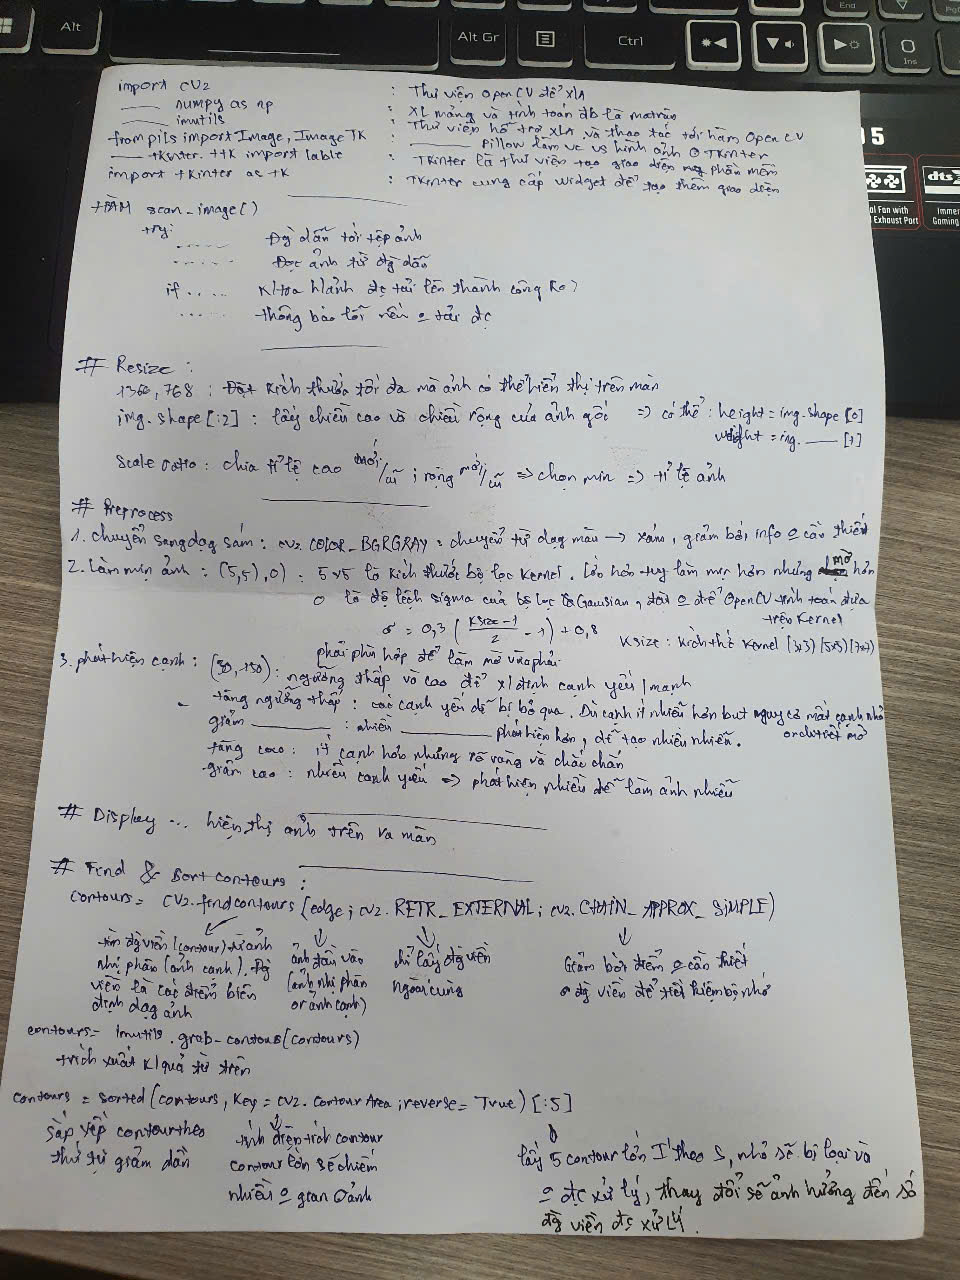 Alt
Alt Gr
Ctrl
End
Ins
import cv2 : Thư viện OpenCV để XLA
—— numpy as np : XL mảng và tính toán đb là ma trận
—— imutils : Thư viện hỗ trợ XLA và thao tác tới hàm OpenCV
from pils import Image, ImageTK : —— Pillow làm vc vs hình ảnh Tkinter
—— tkinter.ttk import lable : Tkinter là thư viện tạo giao diện phần mềm
import tkinter as tk : Tkinter cung cấp widget để tạo thêm giao diện
5
dts
al Fan with
Exhaust Port
Immer
Gaming
scan_image()
try:
...... Đg dẫn tới tệp ảnh
...... Đọc ảnh từ đg dẫn
if ..... Ktra h/ảnh đc tải lên thành công ko?
..... thông báo lỗi nếu o tải đc
# Resize :
1366, 768 : Kích thước tối đa mà ảnh có thể hiển thị trên màn
img.shape[:2] : lấy chiều cao và chiều rộng của ảnh gốc => có thể : height = img.shape [0]
= img. —— [1]
Scale ratio : chia tỉ lệ cao mới/cũ ; rộng mới/cũ => chọn min => tỉ lệ ảnh
# Preprocess
1. chuyển sang dạng xám : cv2.COLOR_BGRGRAY : chuyển từ dạng màu -> xám, giảm bớt info o cần thiết
2. Làm mịn ảnh : (5,5),0) : 5x5 là kích thước bộ lọc Kernel. Lớn hơn tuy làm mịn hơn nhưng mờ hơn
0 là độ lệch sigma của bộ lọc Gausian, đặt o để OpenCV tính toán dựa
trên Kernel
σ = 0,3 (Ksize-1/2 - 1) + 0,8 Ksize : kích thc Kernel [3x3] [5x5] [7x7]
phải phù hợp để làm mờ vừa phải
3. phát hiện cạnh : (50, 150) : ngưỡng thấp và cao để x/định cạnh yếu / mạnh
- tăng ngưỡng thấp : các cạnh yếu dễ bị bỏ qua. Dù cạnh ít nhiễu hơn but nguy cơ mất cạnh nhỏ
or chi tiết mờ
giảm —— : nhiều —— phát hiện hơn, dễ tạo nhiều nhiễu.
tăng cao : ít cạnh hơn nhưng rõ ràng và chắc chắn
giảm cao : nhiều cạnh yếu => phát hiện nhiều dễ làm ảnh nhiễu
# Display ... hiển thị ảnh trên ra màn
# Find & Sort contours :
contours = cv2.findcontours (edge; cv2.RETR_EXTERNAL; cv2.CHAIN_APPROX_SIMPLE)
tìm đg viền (contour) từ ảnh
nhị phân (ảnh cạnh). Đg
viền là các điểm biên
định dạng ảnh
ảnh đầu vào
(ảnh nhị phân
or ảnh cạnh)
chỉ lấy đg viền
ngoài cùng
Giảm bớt điểm o cần thiết
ở đg viền để tiết kiệm bộ nhớ
contours = imutils.grab_contous(contours)
trích xuất k/quả từ trên
contours = sorted(contours, Key = cv2.contourArea; reverse = True) [:5]
sắp xếp contour theo
thứ tự giảm dần
tính diện tích contour
contour lớn sẽ chiếm
nhiều o gian ở ảnh
lấy 5 contour lớn I theo S, nhỏ sẽ bị loại và
o đc xử lý, thay đổi sẽ ảnh hưởng đến số
đg viền đc xử lý.